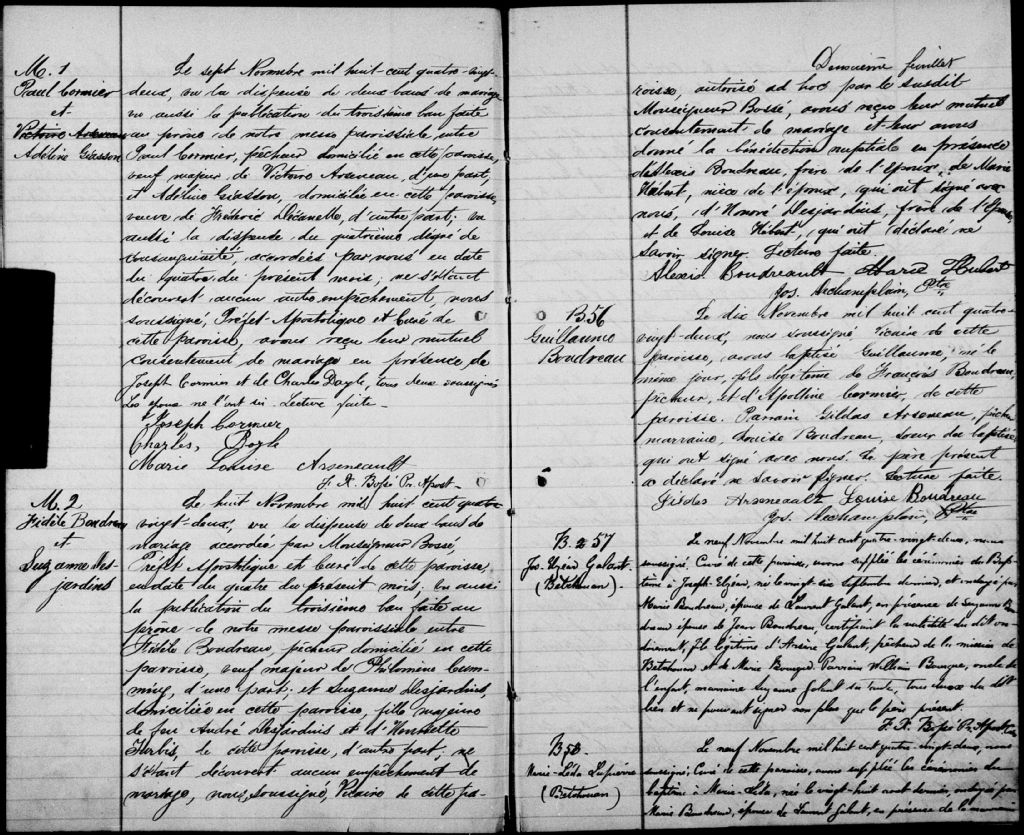 M. 1
Paul Cormier
et
Victoire Arseneau
Adéline Giasson
Le sept Novembre mil huit-cent quatre-vingt-
deux, vu la dispense de deux bans de mariage
vu aussi la publication du troisième ban faite
au prône de notre messe paroissiale, entre
Paul Cormier, pêcheur domicilié en cette paroisse,
veuf majeur de Victoire Arseneau, d'une part,
et Adéline Giasson, domiciliée en cette paroisse,
veuve de Frédéric , d'autre part; vu
aussi la dispense du quatrième dégré de
consanguinité, accordées par nous en date
du quatre du présent mois; ne s'étant
découvert aucun autre empêchement, nous
soussigné, Préfet-Apostolique et Curé de
cette paroisse, avons reçu leur mutuel
consentement de mariage en présence de
Joseph Cormier et de Charles Doyle, tous deux soussignés
Les époux ne l'ont su. Lecture faite-
Joseph Cormier
Charles, Doyle
Marie Louise Arseneault
F. X. Bossé Pr. Apost-
M. 2
Fidèle Boudreau
et
Suzanne Des-
jardins
Le huit Novembre mil huit cent quatre
vingt-deux, vu la dispense de deux bans de
mariage accordée par Monseigneur Bossé,
Préfet Apostolique et Curé de cette paroisse
en date du quatre du présent mois; vu aussi
la publication du troisième ban faite au
prône de notre messe paroissiale entre
Fidèle Boudreau, pêcheur domicilié en cette
paroisse, veuf majeur de Philomène Cum-
ming, d'une part; et Suzanne Desjardins,
domiciliée en cette paroisse, fille majeure
de feu André Desjardins et d'Henriette
Turbis, de cette paroisse, d'autre part; ne
s'étant découvert aucun empêchement de
mariage, nous, soussigné, Vicaire de cette pa-
Deuxième feuillet
roisse, autorisé ad hoc par le susdit
Monseigneur Bossé, avons reçu leur mutuel
consentement de mariage et leur avons
donné la bénédiction nuptiale en présence
d'Alexis Boudreau, frère de l'époux, de Marie
Hébert, nièce de l'époux, qui ont signé avec
nous, d'Honoré Desjardins, frère de l'épouse,
et de Louise Hébert, qui ont déclaré ne
savoir signer. Lecture faite.
Alexis Boudreault Marie Hubert
Jos. Archamplain, Ptre
B56
Guillaume
Boudreau
Le dix Novembre mil huit cent quatre-
vingt-deux, nous soussigné Vicaire de cette
paroisse, avons baptisé Guillaume, né le
même jour, fils légitime de François Boudreau,
pêcheur, et d'Apolline Cormier, de cette
paroisse. Parrain Gildas Arseneau, pêcheur
marraine, Louise Boudreau, soeur du baptisé
qui ont signé avec nous. Le père présent
a déclaré ne savoir signer. Lecture faite.
Gildas Arseneault Louise Boudreau
Jos. Archamplain, Ptre
B. 257
Jos. Elzéar Galant
(Betchouan)-
Le neuf Novembre mil huit cent quatre-vingt-deux, nous
soussigné, Curé de cette paroisse, avons suppléé les cérémonies du Bap-
tême à Joseph Elzéar, né le vingt six Septembre dernier, et ondoyé par
Marie Boudreau, épouse de Laurent Galant, en présence de Suzanne Bou-
dreau épouse de Jean Boudreau, certifiant la validité du dit on-
doiement, fils légitime d'Arsène Galant, pêcheur de la mission de
Betchouan et de Marie Bourque. Parrain William Bourque, oncle de
l'enfant, marraine Suzanne Galant sa tante, tous deux du dit
lieu et ne pouvant signer non plus que le père présent.
F. X. Bossé Pr. Apost.
B58.
Marie-Léda Lapierre
(Betchouan)
Le neuf Novembre mil huit cent quatre-vingt-deux, nous
soussigné, Curé de cette paroisse, avons suppléé les cérémonies du
baptême à Marie-Léda, née le vingt-huit août dernier, ondoyée par
Marie Boudreau, épouse de Laurent Galant, en présence de la